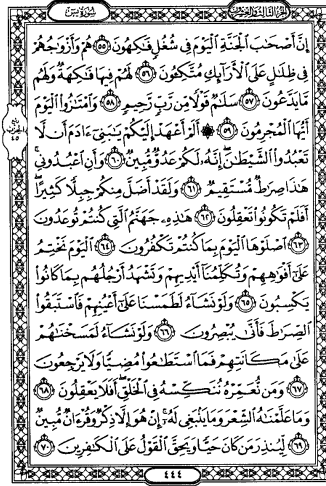 الجزء الثالث والعشرون سورة يس
إِنَّ أَصْحَٰبَ ٱلْجَنَّةِ ٱلْيَوْمَ فِى شُغُلٍ فَٰكِهُونَ ٥٥ هُمْ وَأَزْوَٰجُهُمْ
فِى ظِلَٰلٍ عَلَى ٱلْأَرَآئِكِ مُتَّكِـُٔونَ ٥٦ لَهُمْ فِيهَا فَٰكِهَةٌ وَلَهُم
مَّا يَدَّعُونَ ٥٧ سَلَٰمٌ قَوْلًا مِّن رَّبٍّ رَّحِيمٍ ٥٨ وَٱمْتَٰزُوا۟ ٱلْيَوْمَ
أَيُّهَا ٱلْمُجْرِمُونَ ٥٩ ۞ أَلَمْ أَعْهَدْ إِلَيْكُمْ يَٰبَنِىٓ ءَادَمَ أَن لَّا
تَعْبُدُوا۟ ٱلشَّيْطَٰنَ إِنَّهُۥ لَكُمْ عَدُوٌّ مُّبِينٌ ٦٠ وَأَنِ ٱعْبُدُونِى
هَٰذَا صِرَٰطٌ مُّسْتَقِيمٌ ٦١ وَلَقَدْ أَضَلَّ مِنكُمْ جِبِلًّا كَثِيرًا
أَفَلَمْ تَكُونُوا۟ تَعْقِلُونَ ٦٢ هَٰذِهِۦ جَهَنَّمُ ٱلَّتِى كُنتُمْ تُوعَدُونَ
٦٣ ٱصْلَوْهَا ٱلْيَوْمَ بِمَا كُنتُمْ تَكْفُرُونَ ٦٤ ٱلْيَوْمَ نَخْتِمُ
عَلَىٰٓ أَفْوَٰهِهِمْ وَتُكَلِّمُنَآ أَيْدِيهِمْ وَتَشْهَدُ أَرْجُلُهُم بِمَا كَانُوا۟
يَكْسِبُونَ ٦٥ وَلَوْ نَشَآءُ لَطَمَسْنَا عَلَىٰٓ أَعْيُنِهِمْ فَٱسْتَبَقُوا۟
ٱلصِّرَٰطَ فَأَنَّىٰ يُبْصِرُونَ ٦٦ وَلَوْ نَشَآءُ لَمَسَخْنَٰهُمْ
عَلَىٰ مَكَانَتِهِمْ فَمَا ٱسْتَطَٰعُوا۟ مُضِيًّا وَلَا يَرْجِعُونَ
٦٧ وَمَن نُّعَمِّرْهُ نُنَكِّسْهُ فِى ٱلْخَلْقِ أَفَلَا يَعْقِلُونَ ٦٨
وَمَا عَلَّمْنَٰهُ ٱلشِّعْرَ وَمَا يَنۢبَغِى لَهُۥٓ إِنْ هُوَ إِلَّا ذِكْرٌ وَقُرْءَانٌ مُّبِينٌ
٦٩ لِّيُنذِرَ مَن كَانَ حَيًّا وَيَحِقَّ ٱلْقَوْلُ عَلَى ٱلْكَٰفِرِينَ ٧٠
٤٤٤